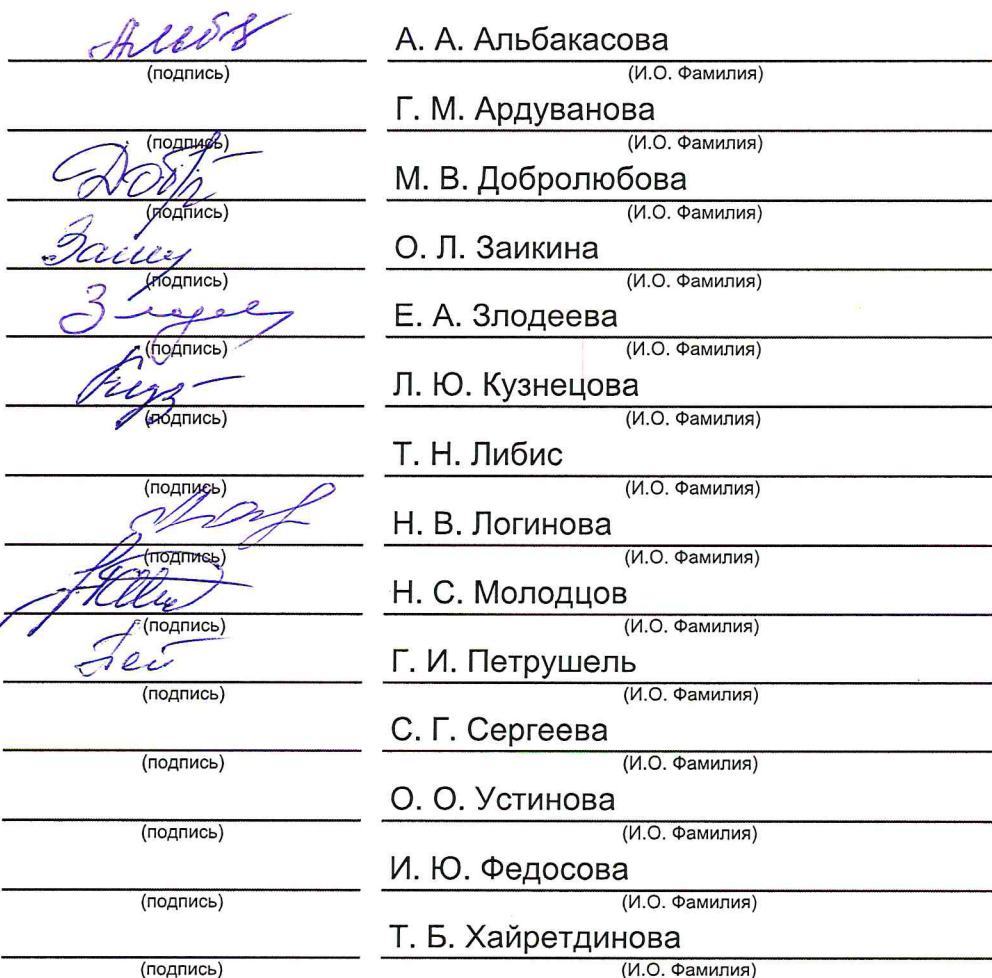 А. А. Альбакасова
(подпись) (И.О. Фамилия)
Г. М. Ардуванова
(подпись) (И.О. Фамилия)
М. В. Добролюбова
(подпись) (И.О. Фамилия)
О. Л. Заикина
(подпись) (И.О. Фамилия)
Е. А. Злодеева
(подпись) (И.О. Фамилия)
Л. Ю. Кузнецова
(подпись) (И.О. Фамилия)
Т. Н. Либис
(подпись) (И.О. Фамилия)
Н. В. Логинова
(подпись) (И.О. Фамилия)
Н. С. Молодцов
(подпись) (И.О. Фамилия)
Г. И. Петрушель
(подпись) (И.О. Фамилия)
С. Г. Сергеева
(подпись) (И.О. Фамилия)
О. О. Устинова
(подпись) (И.О. Фамилия)
И. Ю. Федосова
(подпись) (И.О. Фамилия)
Т. Б. Хайретдинова
(подпись) (И.О. Фамилия)